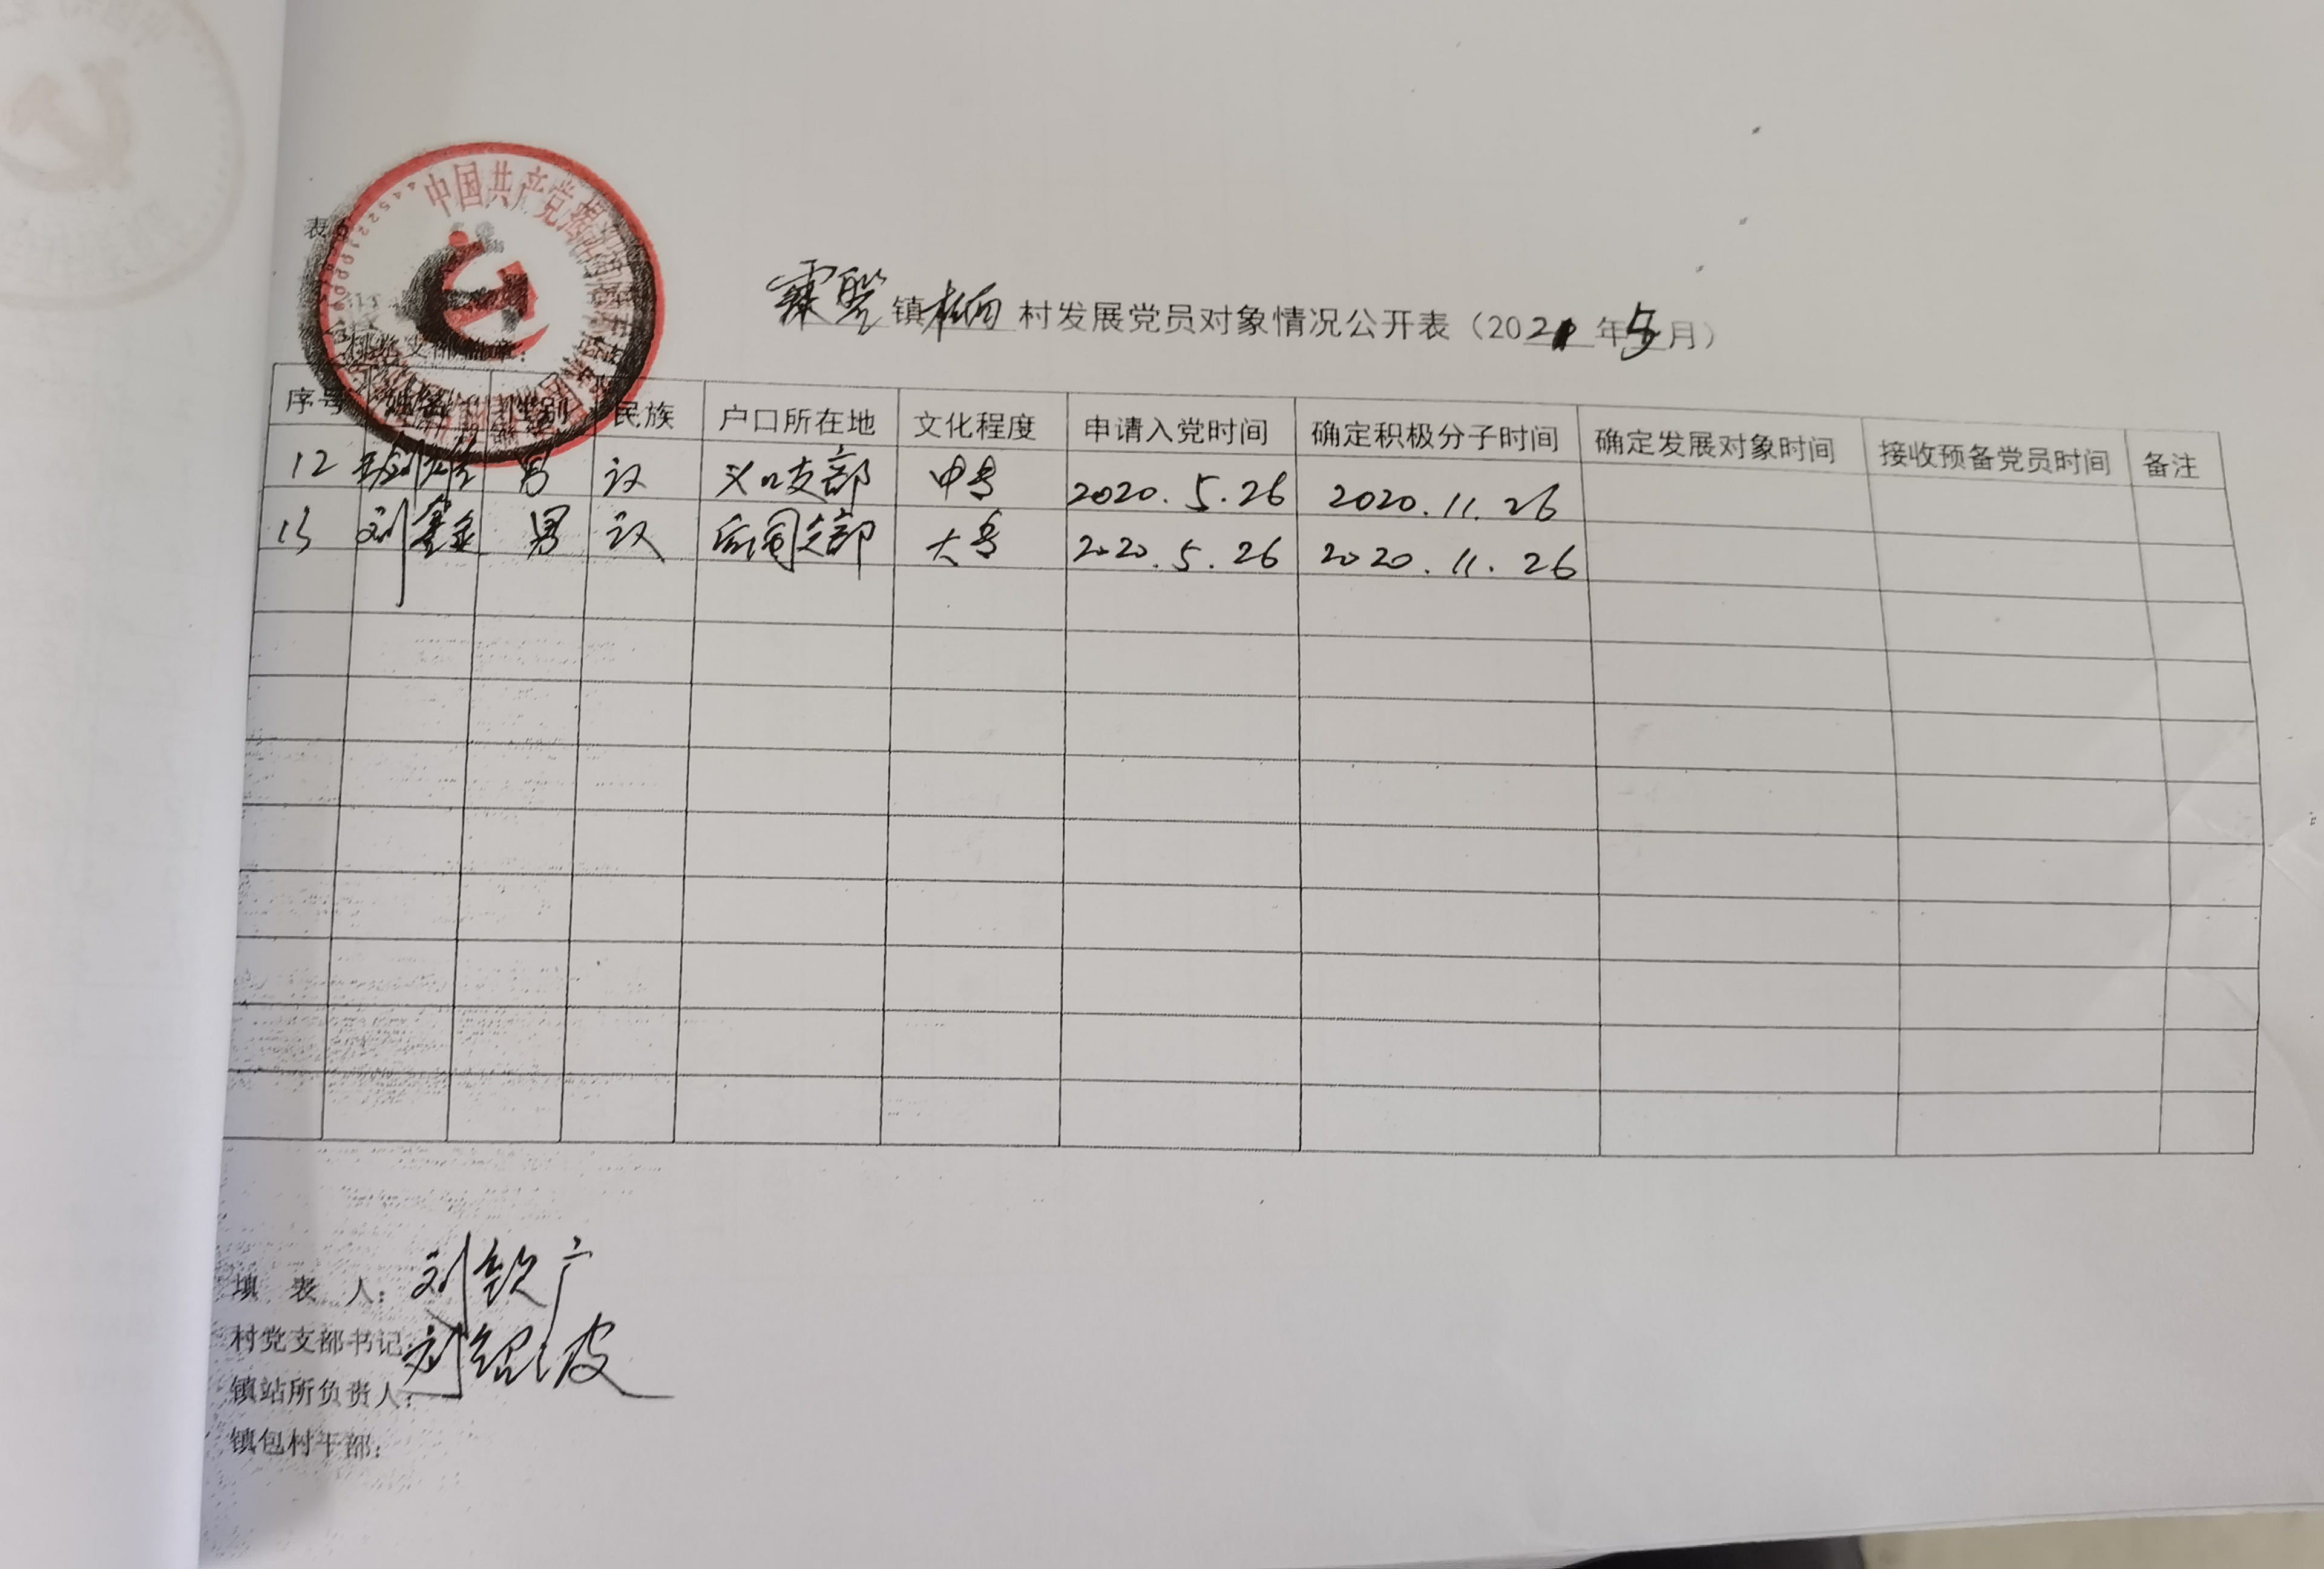 中国共产党揭
表6
霖磐镇桂西村发展党员对象情况公开表（2021年5月）
村党支部盖章：
序号 姓名 性别 民族 户口所在地 文化程度 申请入党时间 确定积极分子时间 确定发展对象时间 接收预备党员时间 备注
12 男 汉 支部 中专 2020.5.26 2020.11.26
13 刘 男 汉 后围支部 大专 2020.5.26 2020.11.26
填 表 人：刘钦广
村党支部书记：刘绍波
镇站所负责人：
镇包村干部：